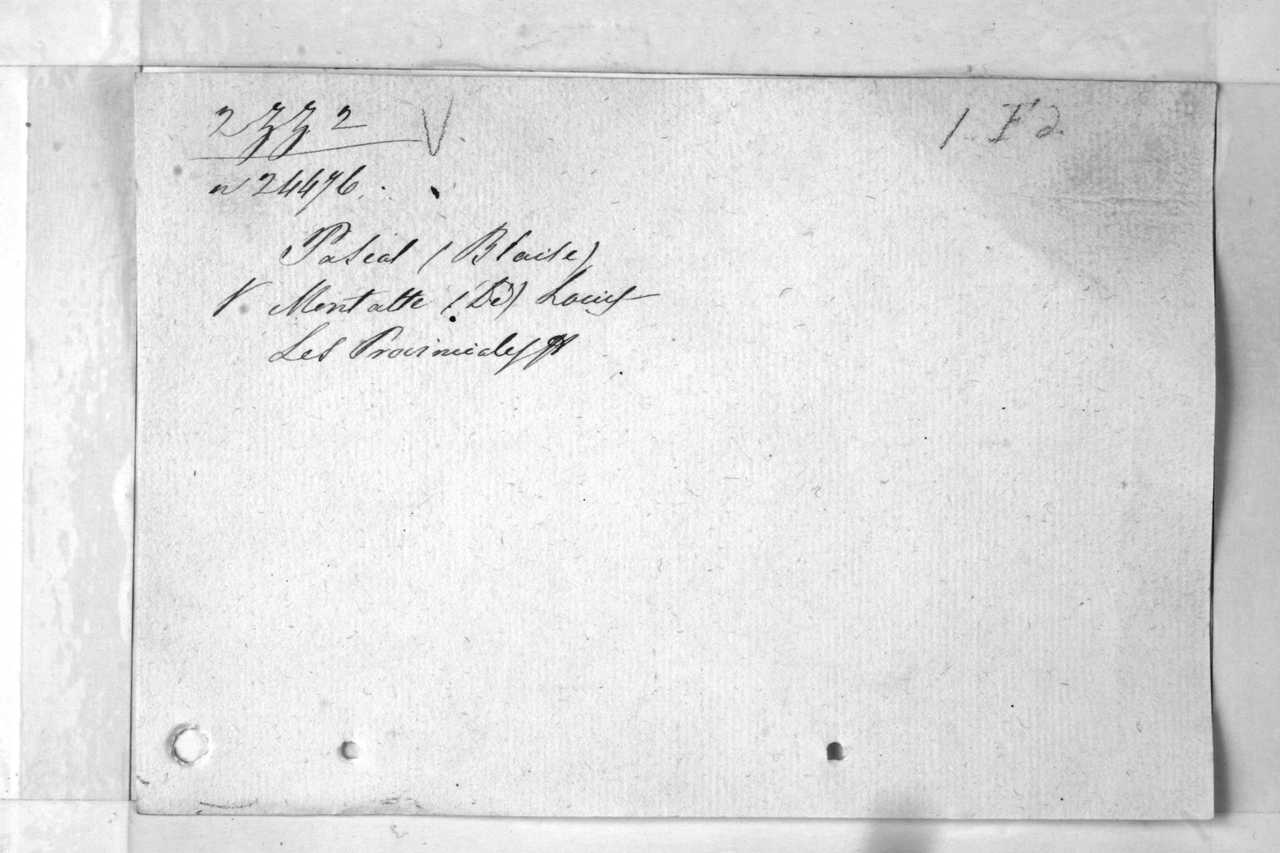 2 zz 2 V
1 F 2
n 24476.
Pascal (Blaise)
V Montalte (De) Louis
Les Provinciales